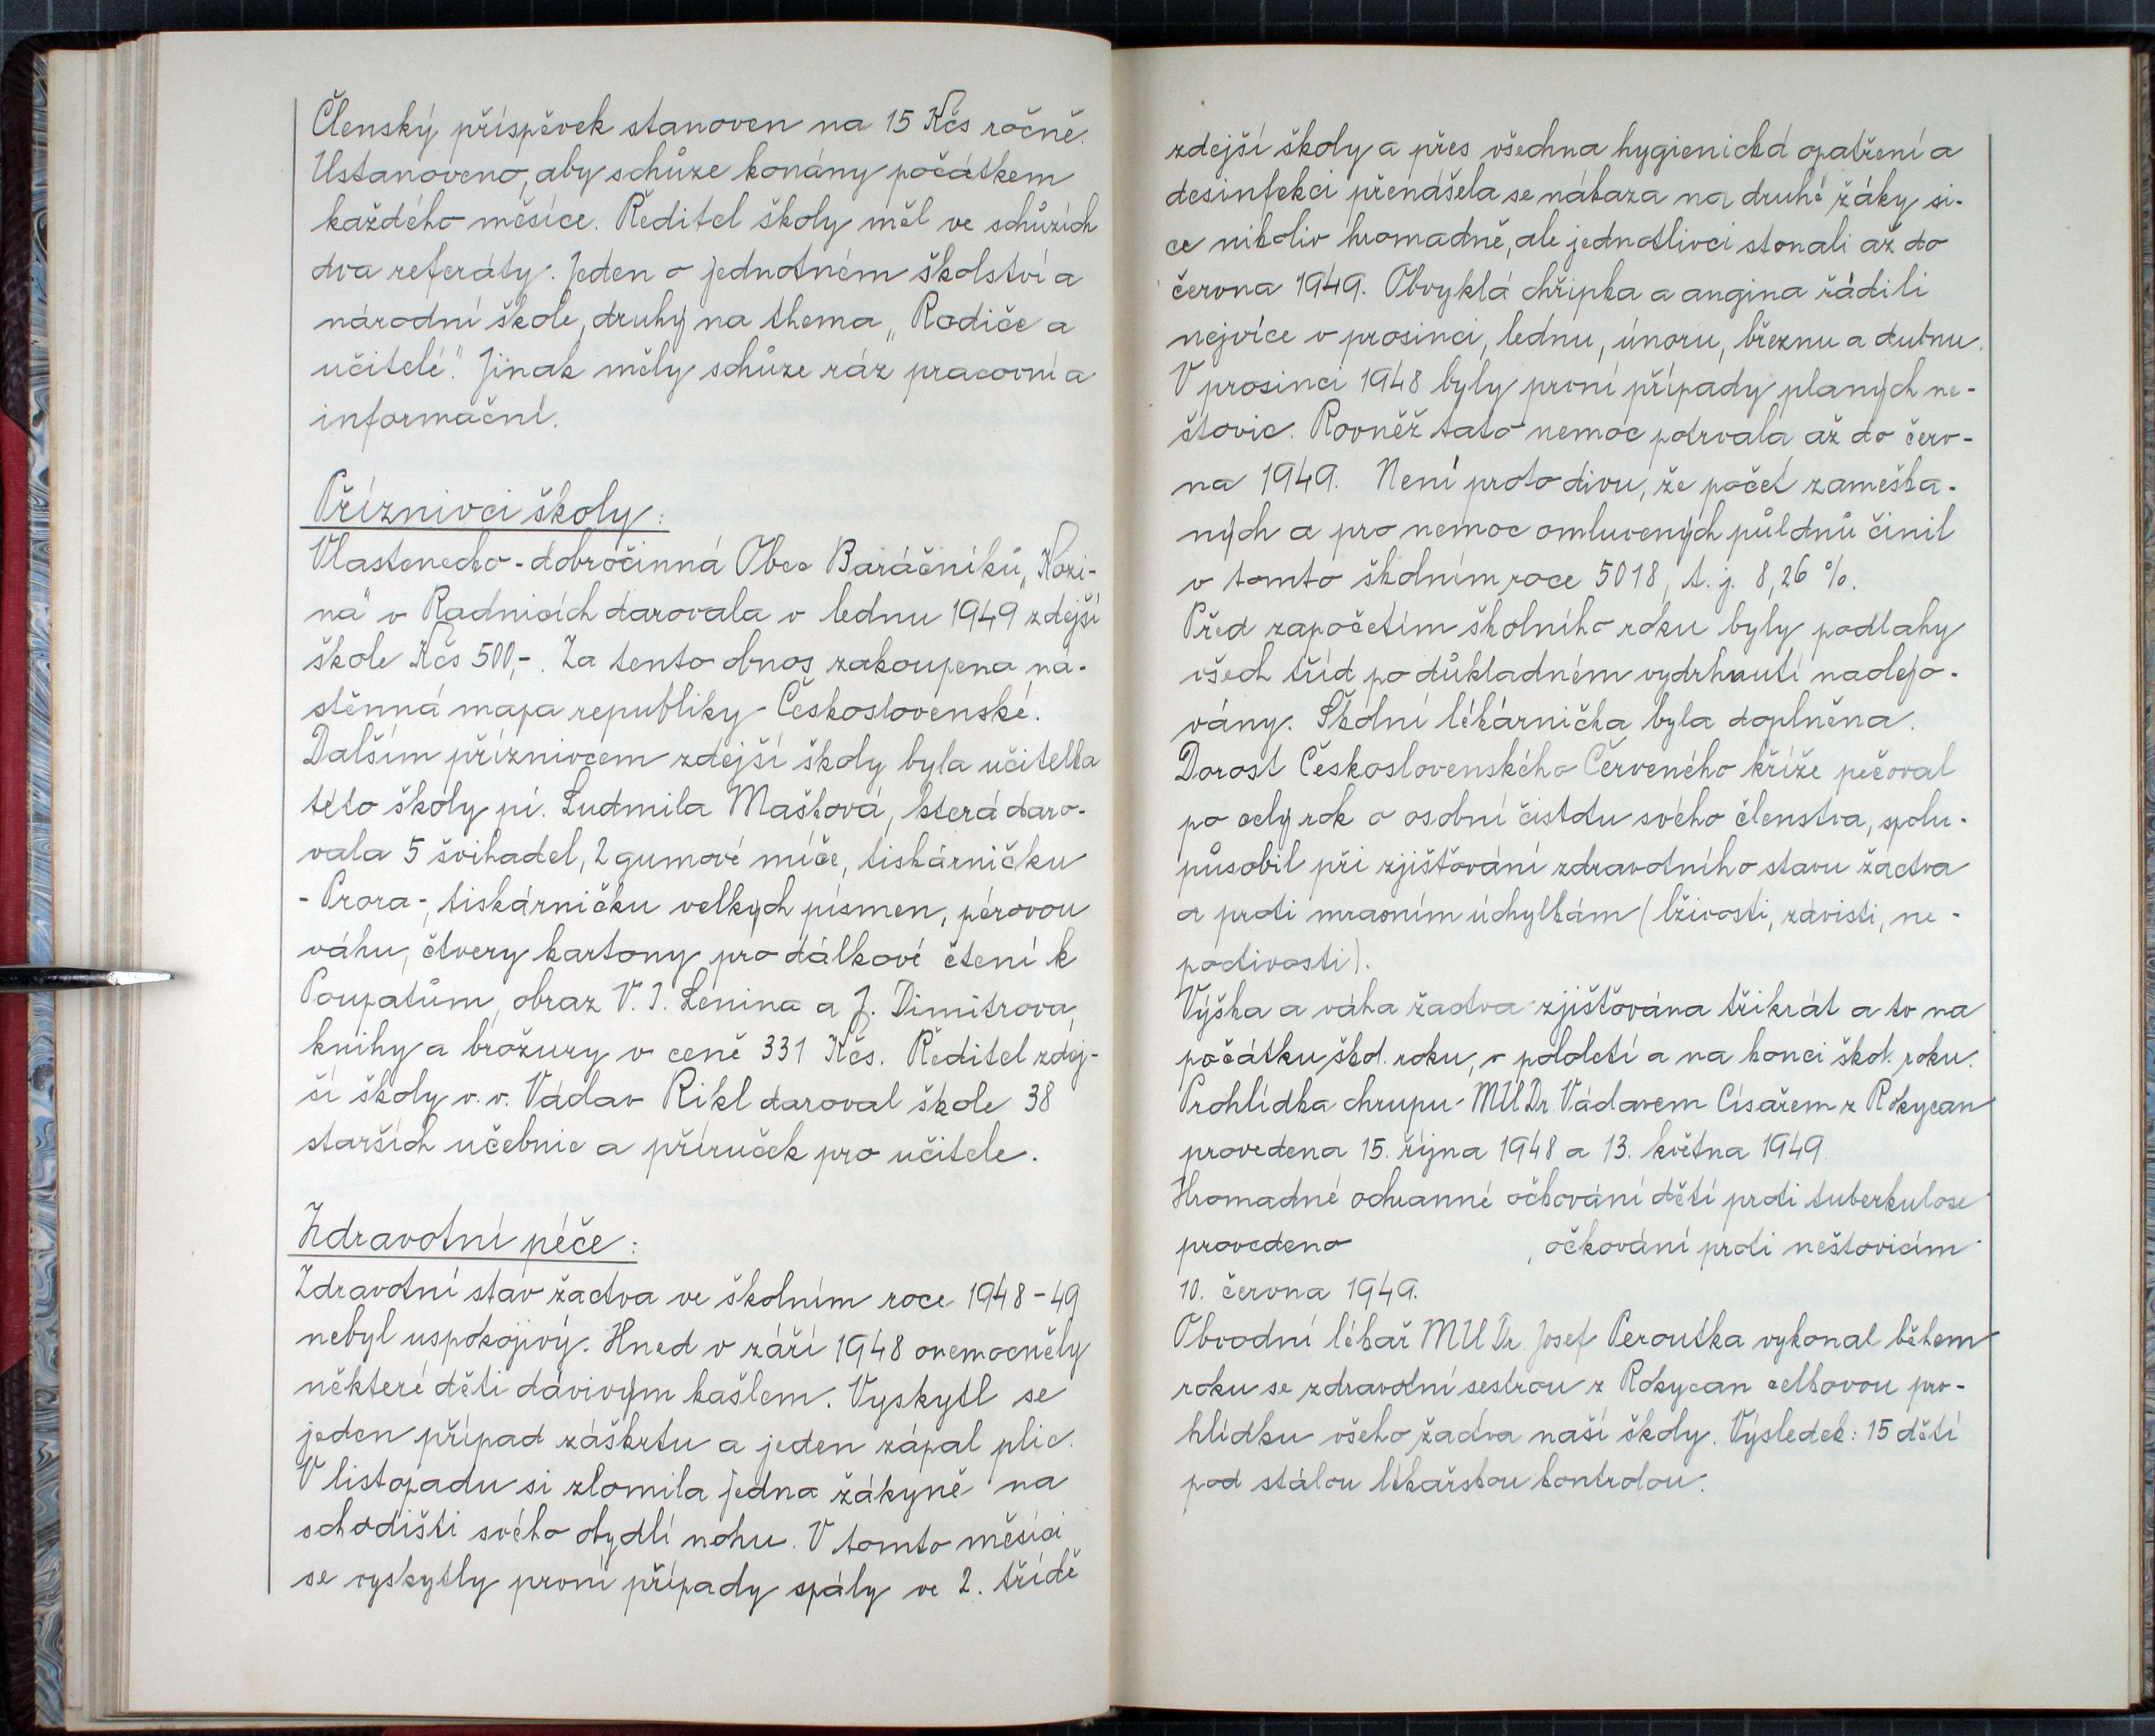 Členský příspěvek stanoven na 15 Kčs ročně.
Ustanoveno, aby schůze konány počátkem
každého měsíce. Ředitel školy měl ve schůzích
dva referáty. Jeden o jednotném školství a
národní škole, druhý na thema „Rodiče a
učitelé". Jinak měly schůze ráz pracovní a
informační.
Příznivci školy:
Vlastenecko-dobročinná Obec Baráčníků „Kozi-
na" v Radnicích darovala v lednu 1949 zdejší
škole Kčs 500,-. Za tento obnos zakoupena ná-
stěnná mapa republiky Československé.
Dalším příznivcem zdejší školy byla učitelka
této školy pí. Ludmila Maštová, která daro-
vala 5 švihadel, 2 gumové míče, tiskárničku
- Prora-, tiskárničku velkých písmen, pérovou
váhu, čtvery kartony pro dálkové čtení k
Poupatům, obraz V. I. Lenina a J. Dimitrova,
knihy a brožury v ceně 331 Kčs. Ředitel zdej-
ší školy v.v. Václav Rikl daroval škole 38
starších učebnic a příruček pro učitele.
Zdravotní péče:
Zdravotní stav žactva ve školním roce 1948-49
nebyl uspokojivý. Hned v září 1948 onemocněly
některé děti dávivým kašlem. Vyskytl se
jeden případ záškrtu a jeden zápal plic.
V listopadu si zlomila jedna žákyně na
schodišti svého obydlí nohu. V tomto měsíci
se vyskytly první případy spály ve 2. třídě
zdejší školy a přes všechna hygienická opatření a
desinfekci přenášela se nákaza na druhé žáky si-
ce nikoliv hromadně, ale jednotlivci stonali až do
června 1949. Obvyklá chřipka a angina řádili
nejvíce v prosinci, lednu, únoru, březnu a dubnu.
V prosinci 1948 byly první případy planých ne-
štovic. Rovněž tato nemoc potrvala až do červ-
na 1949. Není proto divu, že počet zameška-
ných a pro nemoc omluvených půldnů činil
v tomto školním roce 5018, t. j. 8,26 %.
Před započetím školního roku byly podlahy
všech tříd po důkladném vydrhnutí naolejo-
vány. Školní lékárnička byla doplněna.
Dorost Československého Červeného kříže pečoval
po celý rok o osobní čistotu svého členstva, spolu-
působil při zjišťování zdravotního stavu žactva
a proti mravním úchylkám (lživosti, závisti, ne-
poctivosti).
Výška a váha žactva zjišťována třikrát a to na
počátku škol. roku, v pololetí a na konci škol. roku.
Prohlídka chrupu MUDr. Václavem Císařem z Rokycan
provedena 15. října 1948 a 13. května 1949.
Hromadné ochranné očkování dětí proti tuberkulose
provedeno , očkování proti neštovicím
10. června 1949.
Obvodní lékař MUDr. Josef Peroutka vykonal během
roku se zdravotní sestrou z Rokycan celkovou pro-
hlídku všeho žactva naší školy. Výsledek: 15 dětí
pod stálou lékařskou kontrolou.